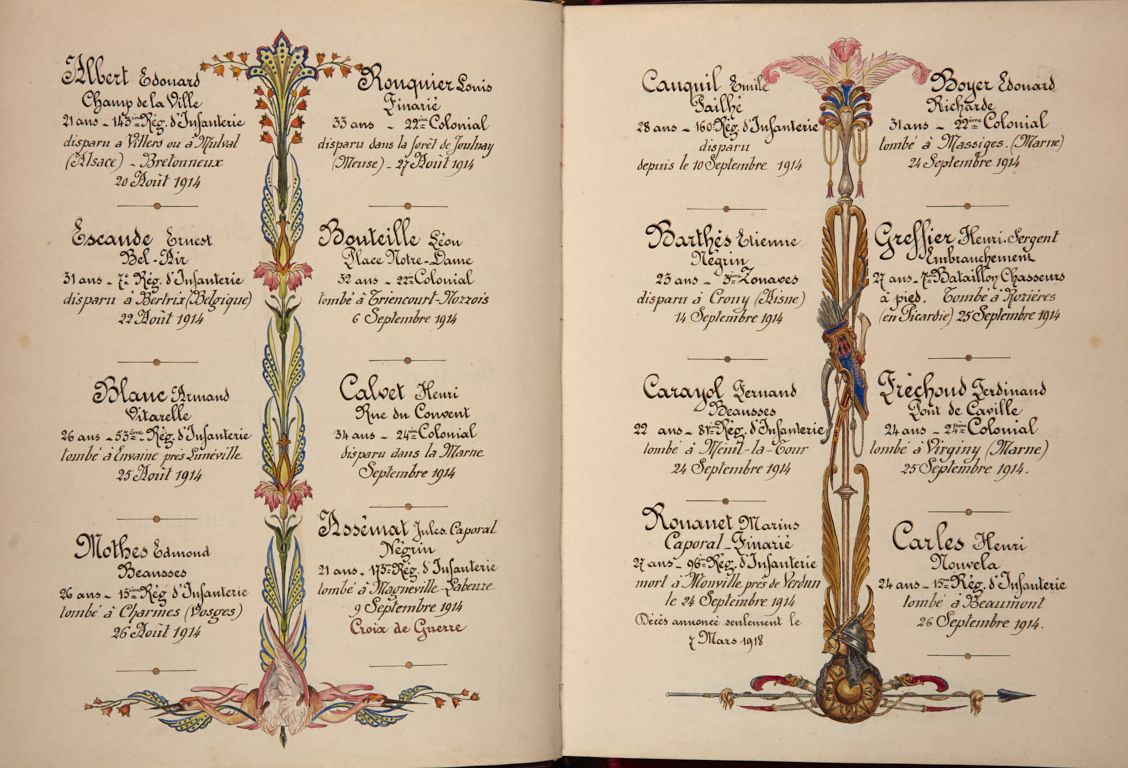 Albert Edouard
Champ de la Ville
21 ans - 143ème Rég. d'Infanterie
disparu à Villers ou à Mulval
(Alsace) - Bretonneux
20 Août 1914
Escande Ernest
Bel-Air
31 ans - 7e Rég. d'Infanterie
disparu à Bertrix (Belgique)
22 Août 1914
Blanc Armand
Vitarelle
26 ans - 53ème Rég. d'Infanterie
tombé à Envaine près Lunéville
25 Août 1914
Mothes Edmond
Beausses
26 ans - 15ème Rég. d'Infanterie
tombé à Charmes (Vosges)
26 Août 1914
Rouquier Louis
Finarié
33 ans - 22ème Colonial
disparu dans la forêt de Joulnay
(Meuse) - 27 Août 1914
Bouteille Léon
Place Notre-Dame
32 ans - 22ème Colonial
tombé à Triencourt-Nozzois
6 Septembre 1914
Calvet Henri
Rue du Convent
34 ans - 24ème Colonial
disparu dans la Marne
Septembre 1914
Assémat Jules. Caporal
Négrin
21 ans - 173e Rég. d'Infanterie
tombé à Magneville-Labeuze
9 Septembre 1914
Croix de Guerre
Cauquil Emile
Pailhé
28 ans - 160e Rég. d'Infanterie
disparu
depuis le 10 Septembre 1914
Barthès Etienne
Négrin
23 ans - 3ème Zouaves
disparu à Crouy (Aisne)
14 Septembre 1914
Carayol Fernand
Beausses
22 ans - 81e Rég. d'Infanterie
tombé à Menil-la-Tour
24 Septembre 1914
Rouanet Marius
Caporal - Finarié
27 ans - 96e Rég. d'Infanterie
mort à Monville près de Verdun
le 24 Septembre 1914
Décès annoncé seulement le
7 Mars 1918
Boyer Edouard
Richarde
31 ans - 22ème Colonial
tombé à Massiges. (Marne)
24 Septembre 1914
Greffier Henri. Sergent
Embranchement
27 ans - 7me Bataillon Chasseurs
à pied. Tombé à Rozières
(en Picardie) 25 Septembre 1914
Fréchoud Ferdinand
Pont de Caville
24 ans - 24ème Colonial
tombé à Virginy (Marne)
25 Septembre 1914.
Carles Henri
Nouvela
24 ans - 15e Rég. d'Infanterie
tombé à Beaumont
26 Septembre 1914.